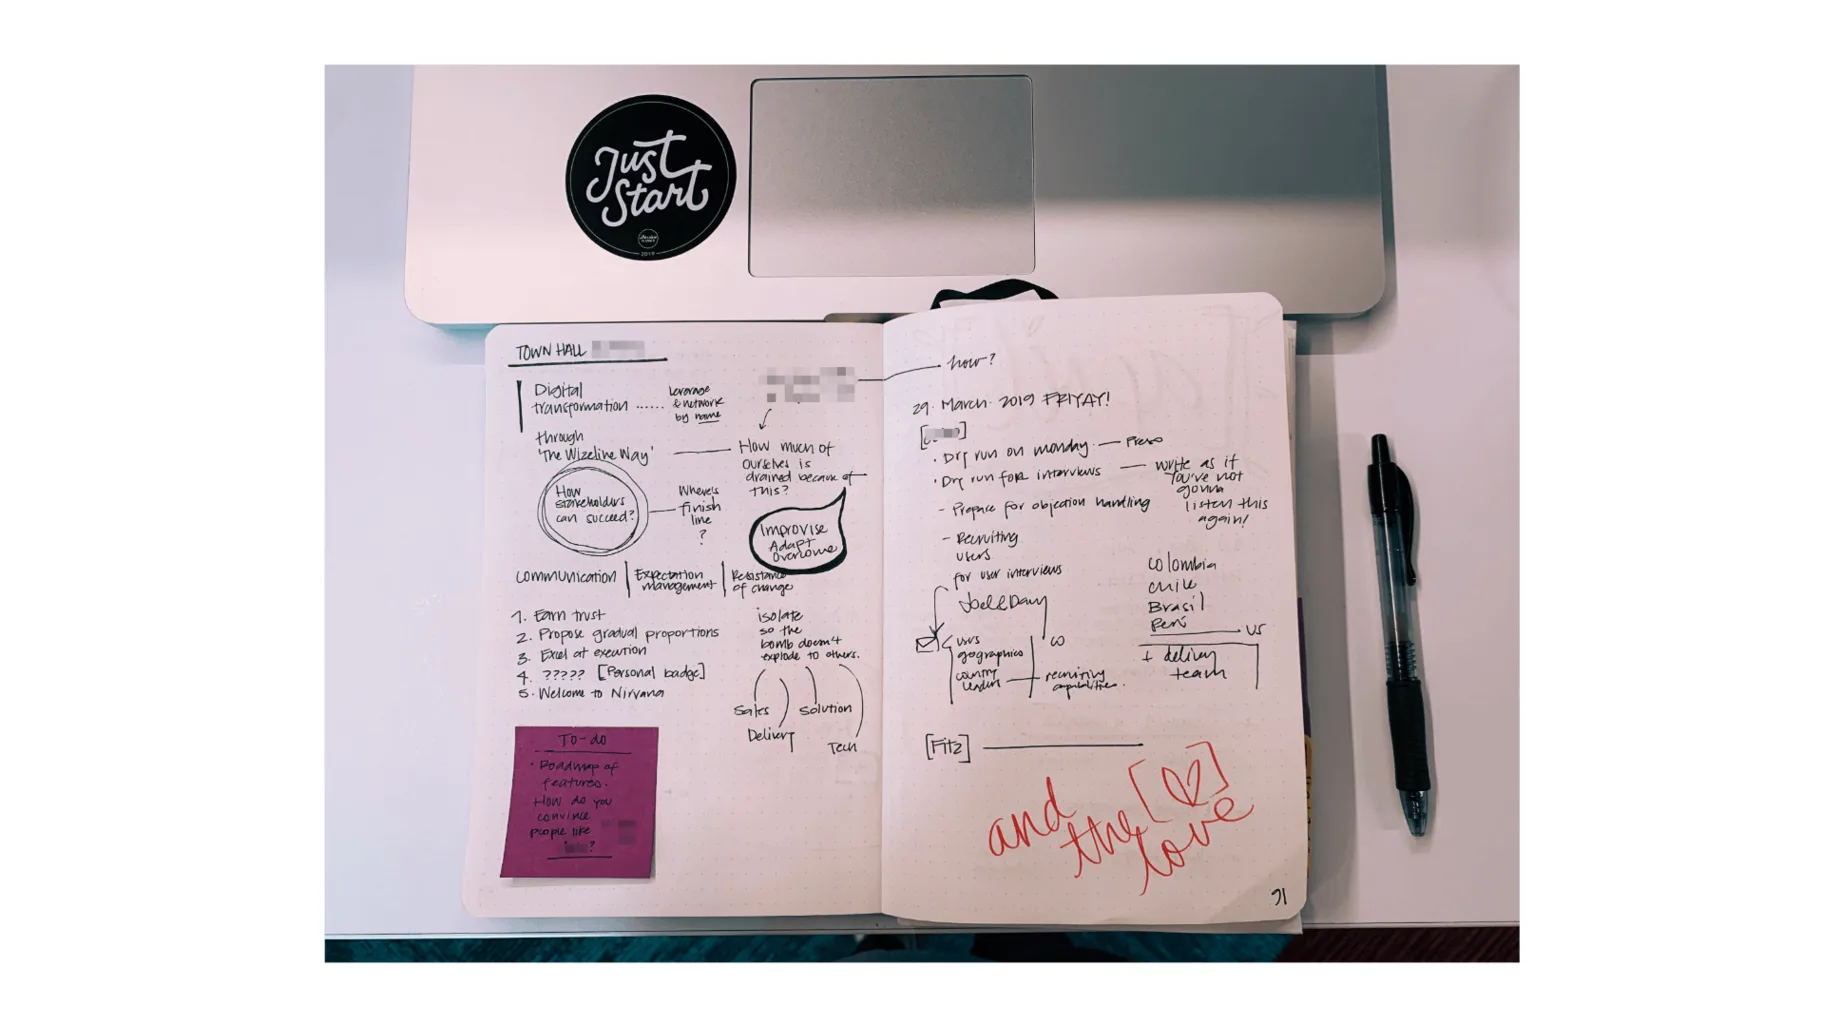 Just
Start
2019
TOWN HALL
Digital
transformation ......
leverage
& network
by name
through
'The Wizeline Way'
How
stakeholders
can succeed?
Where's
finish
line
?
How much of
ourselves is
drained because of
this?
Improvise
Adapt
Overcome
Communication
Expectation
management
Resistance
of change
1. Earn trust
2. Propose gradual proportions
3. Excel at execution
4. ????? [Personal badge]
5. Welcome to Nirvana
isolate
so the
bomb doesn't
explode to others.
Sales
Solution
Delivery
Tech
To-do
• Roadmap of
features.
How do you
convince
people like
?
how?
29. March. 2019 FRIYAY!
• Dry run on monday. — Preso
• Dry run for interviews — write as if
you've not
gonna
listen this
again!
- Prepare for objection handling
- Recruiting
users
for user interviews
Colombia
Chile
Brasil
Perú
US
+ delivery
team
users
geographics
country
leaders
co
recruiting
capabilities.
[Fitz]
and
the [♡]
love
91